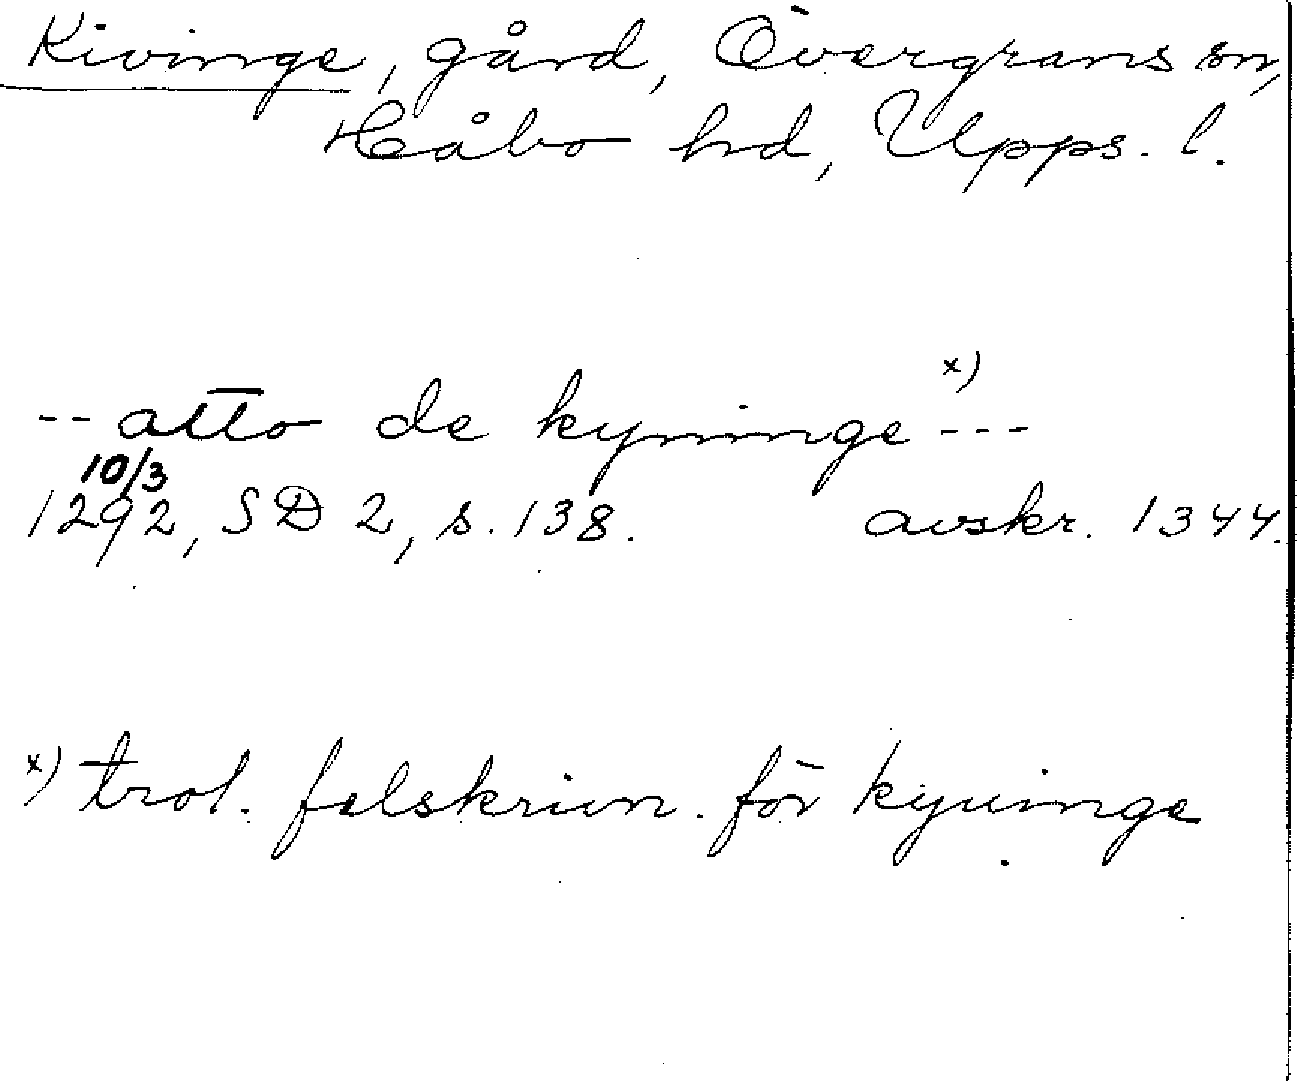 Kivinge, gård, Övergrans sn,
Håbo hd, Upps. l.
-- atto de kyninge x) ---
10/3
1292, SD 2, s. 138. avskr. 1344.
x) trol. felskrivn. för kyuinge